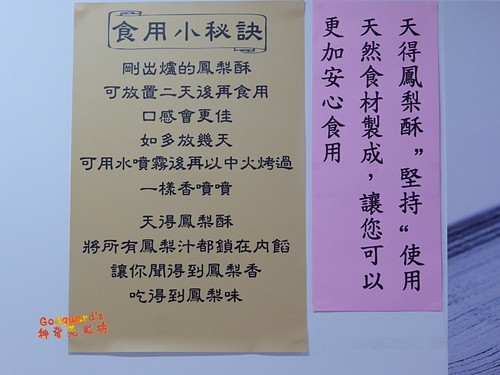 食用小秘訣
剛出爐的鳳梨酥
可放置二天後再食用
口感會更佳
如多放幾天
可用水噴霧後再以中火烤過
一樣香噴噴
天得鳳梨酥
將所有鳳梨汁都鎖在內餡
讓你聞得到鳳梨香
吃得到鳳梨味
天得鳳梨酥”堅持“使用
天然食材製成，讓您可以
更加安心食用